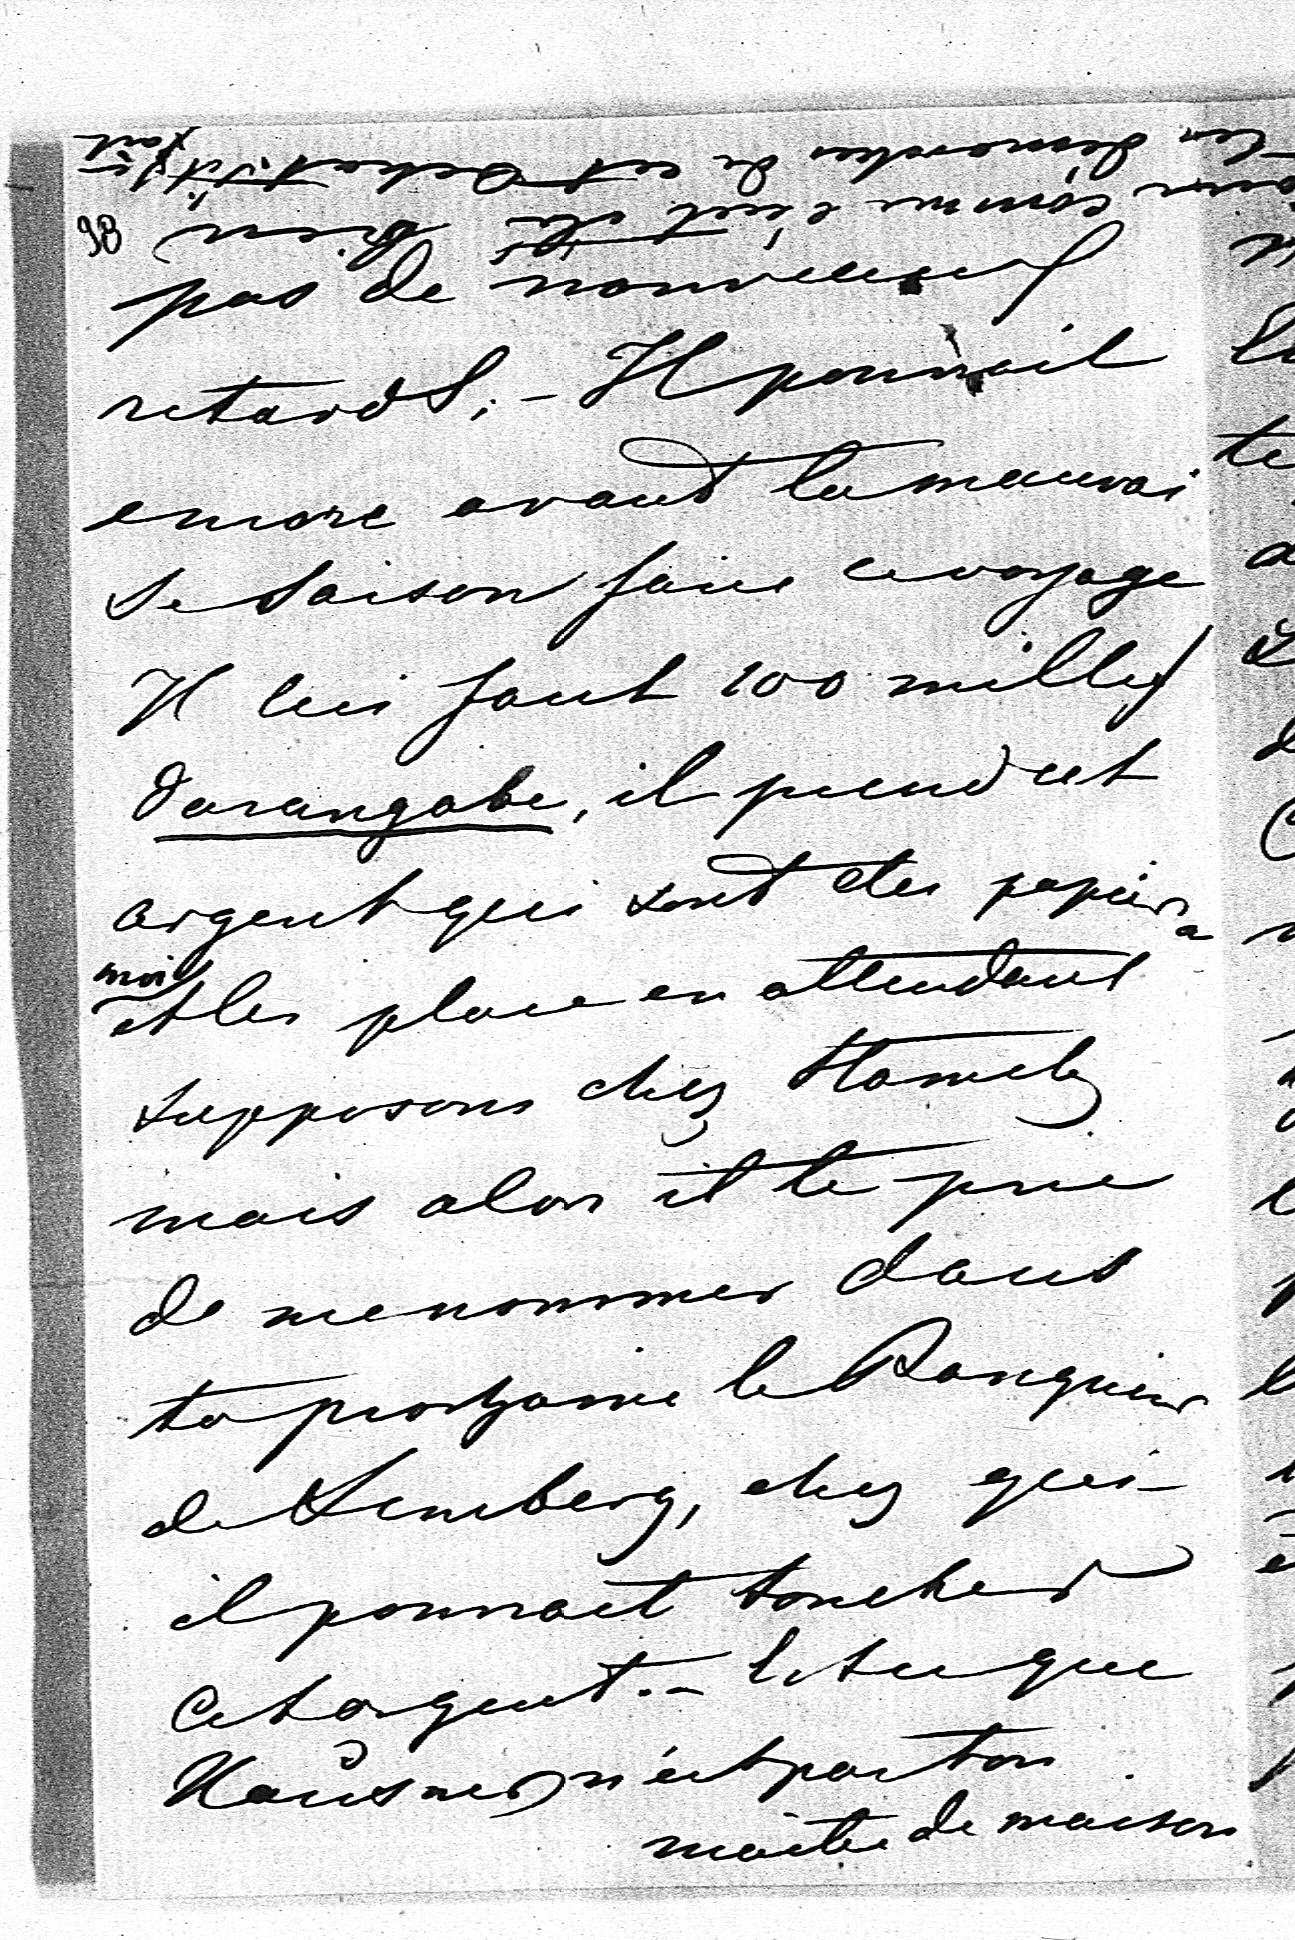 98
pas de nouveaux
retards. - Il pourrait
encore avant la mauvai
se saison faire ce voyage
Il lui faut 100 mille f
darangabe, il prend cet
argent qui sont des papiers a
moi
et les place en attendant
supposons chez
mais alors il te prie
de me nommer dans
ta prochaine le Banquier
de Lemberg, chez qui
il pourrait toucher
cet argent. - que
Hausner n'est pas ton
maitre de maison
les démarches de cet fait
comme c'est bien